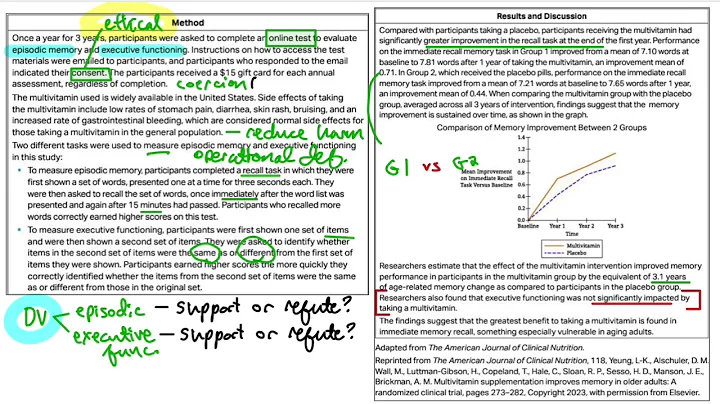 ethical
Method
Once a year for 3 years, participants were asked to complete an online test to evaluate
episodic memory and executive functioning. Instructions on how to access the test
materials were emailed to participants, and participants who responded to the email
indicated their consent. The participants received a $15 gift card for each annual
assessment, regardless of completion.
coercion
The multivitamin used is widely available in the United States. Side effects of taking
the multivitamin include low rates of stomach pain, diarrhea, skin rash, bruising, and an
increased rate of gastrointestinal bleeding, which are considered normal side effects for
those taking a multivitamin in the general population.
— reduce harm
Two different tasks were used to measure episodic memory and executive functioning
in this study:
operational def.
• To measure episodic memory, participants completed a recall task in which they were
first shown a set of words, presented one at a time for three seconds each. They
were then asked to recall the set of words, once immediately after the word list was
presented and again after 15 minutes had passed. Participants who recalled more
words correctly earned higher scores on this test.
• To measure executive functioning, participants were first shown one set of items
and were then shown a second set of items. They were asked to identify whether
items in the second set of items were the same as or different from the first set of
items they were shown. Participants earned higher scores the more quickly they
correctly identified whether the items from the second set of items were the same
as or different from those in the original set.
DV
episodic — support or refute?
executive — support or refute?
func
Results and Discussion
Compared with participants taking a placebo, participants receiving the multivitamin had
significantly greater improvement in the recall task at the end of the first year. Performance
on the immediate recall memory task in Group 1 improved from a mean of 7.10 words at
baseline to 7.81 words after 1 year of taking the multivitamin, an improvement mean of
0.71. In Group 2, which received the placebo pills, performance on the immediate recall
memory task improved from a mean of 7.21 words at baseline to 7.65 words after 1 year,
an improvement mean of 0.44. When comparing the multivitamin group with the placebo
group, averaged across all 3 years of intervention, findings suggest that the memory
improvement is sustained over time, as shown in the graph.
G1 vs G2
Comparison of Memory Improvement Between 2 Groups
Mean Improvement
on Immediate Recall
Task Versus Baseline
1.4
1.2
1.0
0.8
0.6
0.4
0.2
0.0
Baseline Year 1 Year 2 Year 3
Time
Multivitamin
Placebo
Researchers estimate that the effect of the multivitamin intervention improved memory
performance in participants in the multivitamin group by the equivalent of 3.1 years
of age-related memory change as compared to participants in the placebo group.
Researchers also found that executive functioning was not significantly impacted by
taking a multivitamin.
The findings suggest that the greatest benefit to taking a multivitamin is found in
immediate memory recall, something especially vulnerable in aging adults.
Adapted from The American Journal of Clinical Nutrition.
Reprinted from The American Journal of Clinical Nutrition, 118, Yeung, L-K., Alschuler, D. M.
Wall, M., Luttman-Gibson, H., Copeland, T., Hale, C., Sloan, R. P., Sesso, H. D., Manson, J. E.,
Brickman, A. M. Multivitamin supplementation improves memory in older adults: A
randomized clinical trial, pages 273–282, Copyright 2023, with permission from Elsevier.